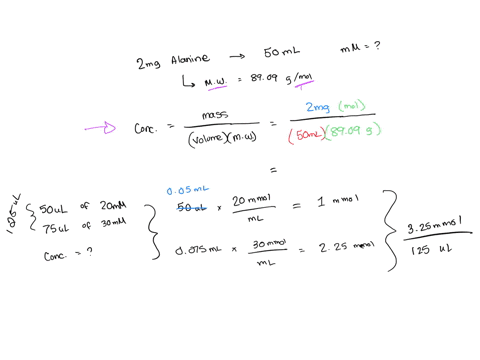 2mg Alanine → 50mL mM = ?
↳ M.W. = 89.09 g/mol
Conc. = mass / (volume)(m.w) = 2mg (mol) / (50mL)(89.09 g)
=
125 uL { 50uL of 20mM
75uL of 30mM
Conc. = ?
0.05 mL
50 uL × 20 mmol / mL = 1 mmol
0.075 mL × 30 mmol / mL = 2.25 mmol
3.25 mmol / 125 uL